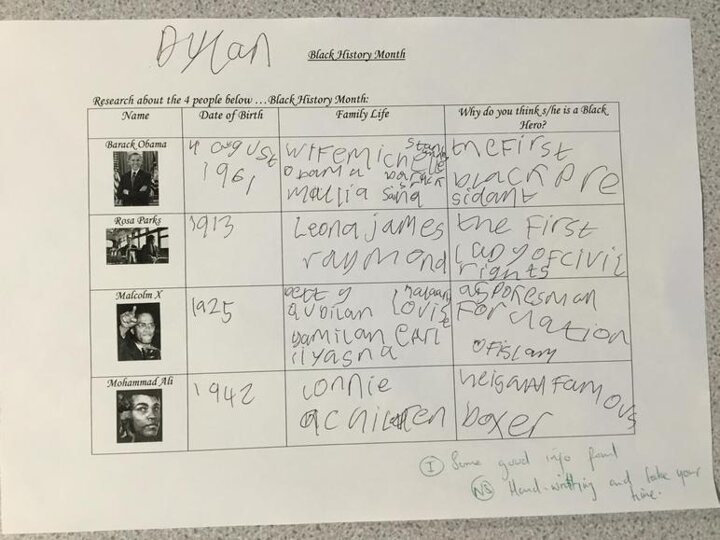 Dylan
Black History Month
Research about the 4 people below ...Black History Month:
Name Date of Birth Family Life Why do you think s/he is a Black Hero?
Barack Obama
4 august
1961
wife michelle
obama barack
mallia
the first
black pre
sidant
Rosa Parks
1913
Leona james
raymond
the First
Lady of civil
rights
Malcolm X
1925
betty
louise
earl
ilyasha
a spokesman
For nation
of islam
Mohammad Ali
1942
connie
children
famous
boxer
I Some good info found
NS Hand-writing and take your
time.